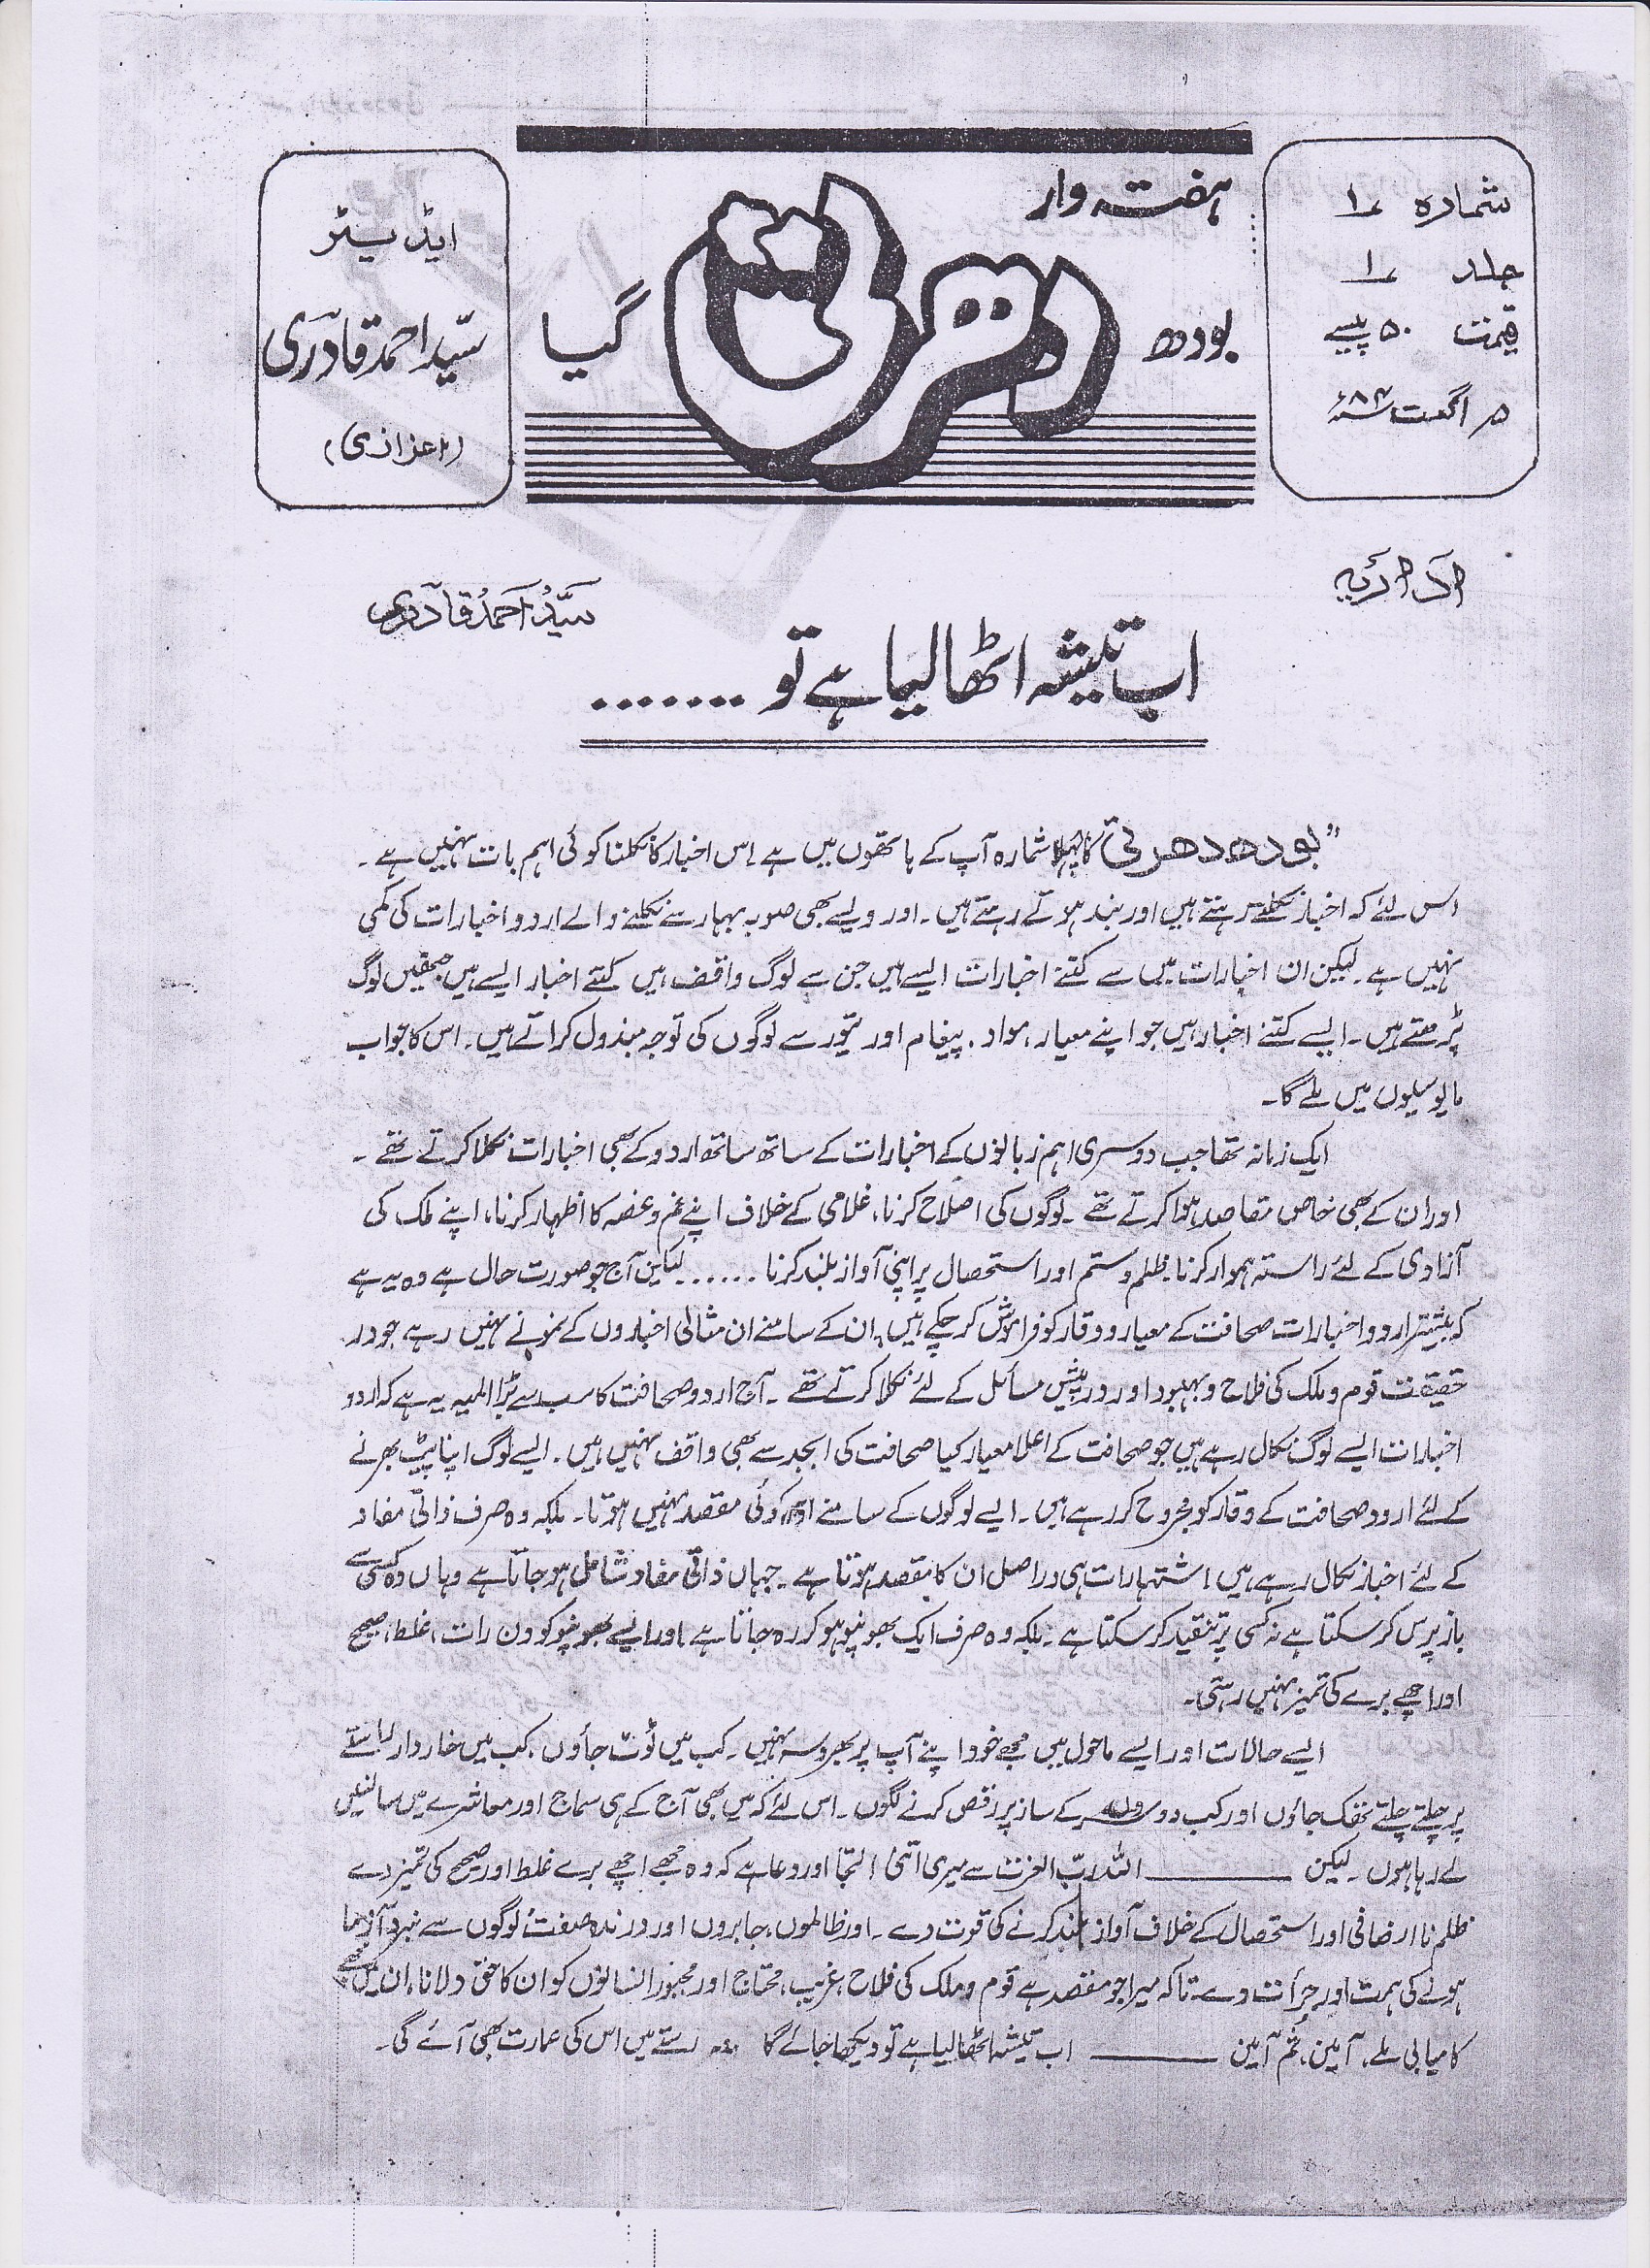 شمارہ ۱
جلد ۱
قیمت ۵۰ پیسے
۵ اگست ۸۴ء
ہفتہ وار
بودھ دھرتی گیا
ایڈیٹر
سیّد احمد قادری
(اعزازی)
اداریہ
سیّد احمد قادری
اب تیشہ اٹھالیا ہے تو .......
”بودھ دھرتی“ کا پہلا شمارہ آپ کے ہاتھوں میں ہے۔ اس اخبار کا نکلنا کوئی اہم بات نہیں ہے۔
اس لئے کہ اخبار نکلتے رہتے ہیں اور بند ہوتے رہتے ہیں۔ اور ویسے بھی صوبہ بہار سے نکلنے والے اردو اخبارات کی کمی
نہیں ہے۔ لیکن ان اخبارات میں سے کتنے اخبارات ایسے ہیں جن سے لوگ واقف ہیں کتنے اخبار ایسے ہیں جنھیں لوگ
پڑھتے ہیں۔ ایسے کتنے اخبار ہیں جو اپنے معیار، مواد، پیغام اور تیور سے لوگوں کی توجہ مبذول کراتے ہیں۔ اس کا جواب
مایوسیوں میں ملے گا۔
ایک زمانہ تھا جب دوسری اہم زبانوں کے اخبارات کے ساتھ ساتھ اردو کے بھی اخبارات نکلا کرتے تھے۔
اور ان کے بھی خاص مقاصد ہوا کرتے تھے۔ لوگوں کی اصلاح کرنا، غلامی کے خلاف اپنے غم و غصہ کا اظہار کرنا، اپنے ملک کی
آزادی کے لئے راستہ ہموار کرنا۔ ظلم و ستم اور استحصال پر اپنی آواز بلند کرنا ...... لیکن آج جو صورت حال ہے وہ یہ ہے
کہ بیشتر اردو اخبارات صحافت کے معیار و وقار کو فراموش کر چکے ہیں، ان کے سامنے ان مثالی اخباروں کے نمونے نہیں رہے جو در
حقیقت قوم و ملک کی فلاح و بہبود اور درپیش مسائل کے لئے نکلا کرتے تھے۔ آج اردو صحافت کا سب سے بڑا المیہ یہ ہے کہ اردو
اخبارات ایسے لوگ نکال رہے ہیں جو صحافت کے اعلا معیار کیا صحافت کی ابجد سے بھی واقف نہیں ہیں۔ ایسے لوگ اپنا پیٹ بھرنے
کے لئے اردو صحافت کے وقار کو مجروح کر رہے ہیں۔ ایسے لوگوں کے سامنے اور کوئی مقصد نہیں ہوتا۔ بلکہ وہ صرف ذاتی مفاد
کے لئے اخبار نکال رہے ہیں۔ اشتہارات ہی دراصل ان کا مقصد ہوتا ہے۔ جہاں ذاتی مفاد شامل ہو جاتا ہے وہاں وہ کسی سے
باز پرس کر سکتا ہے نہ کسی پر تنقید کر سکتا ہے۔ بلکہ وہ صرف ایک بھونپو ہو کر رہ جاتا ہے اور ایسے بھونپو کو دن رات، غلط، صحیح
اور اچھے برے کی تمیز نہیں رہتی۔
ایسے حالات اور ایسے ماحول میں مجھے خود اپنے آپ پر بھروسہ نہیں۔ کب میں ٹوٹ جاؤں، کب میں خاردار راستے
پر چلتے چلتے تھک جاؤں اور کب دوسروں کے ساز پر رقص کرنے لگوں۔ اس لئے کہ میں بھی آج کے ہی سماج اور معاشرے میں سانسیں
لے رہا ہوں۔ لیکن ـــــــ اللہ ربّ العزت سے میری اتنی التجا اور دعا ہے کہ وہ مجھے اچھے برے غلط اور صحیح کی تمیز دے
ظلم ناانصافی اور استحصال کے خلاف آواز بلند کرنے کی قوت دے۔ اور ظالموں، جابروں اور درندہ صفت لوگوں سے نبرد آزما
ہونے کی ہمت اور جرأت دے۔ تاکہ میرا جو مقصد ہے قوم و ملک کی فلاح، غریب، محتاج اور مجبور انسانوں کو ان کا حق دلانا، ان میں مجھے
کامیابی ملے، آمین، ثم آمین ـــــــ اب تیشہ اٹھالیا ہے تو دیکھا جائے گا رستے میں اس کی عمارت بھی آئے گی۔